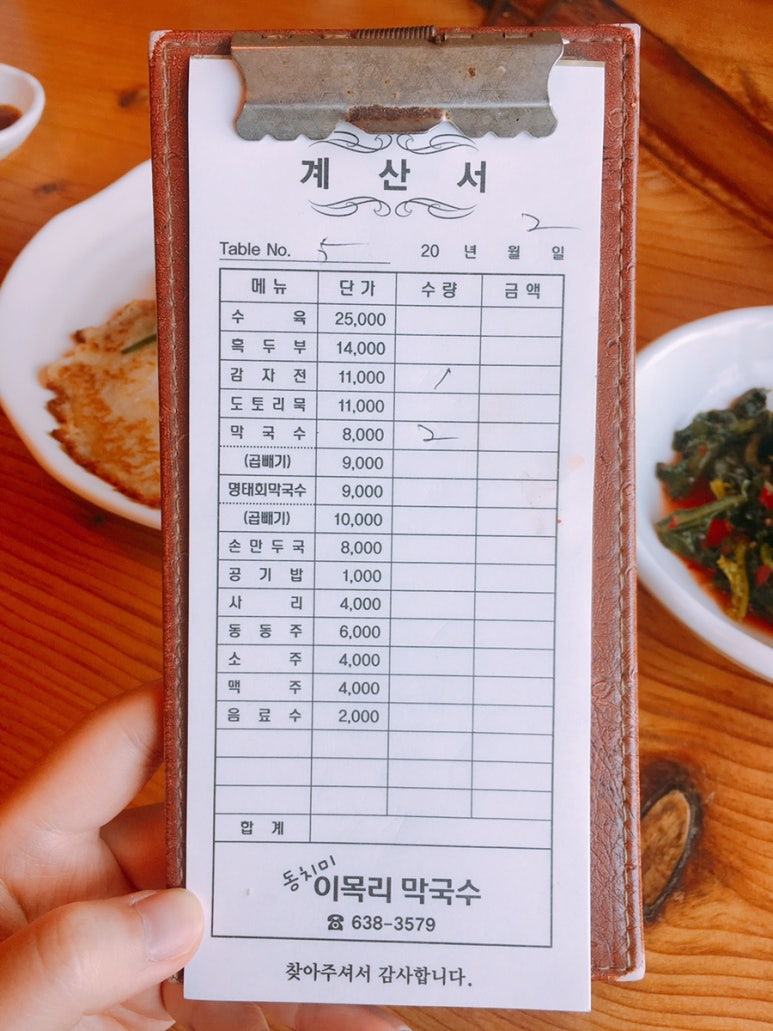 계 산 서
2
Table No. 5 20 년 월 일
메뉴 단가 수량 금액
수 육 25,000
흑 두 부 14,000
감 자 전 11,000 /
도 토 리 묵 11,000
막 국 수 8,000 2
(곱빼기) 9,000
명태회막국수 9,000
(곱빼기) 10,000
손 만 두 국 8,000
공 기 밥 1,000
사 리 4,000
동 동 주 6,000
소 주 4,000
맥 주 4,000
음 료 수 2,000
합 계
동치미 이목리 막국수
☎ 638-3579
찾아주셔서 감사합니다.